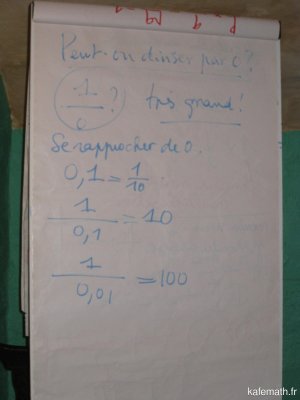 Peut-on diviser par 0 ?
1/0 ? très grand !
Se rapprocher de 0.
0,1 = 1/10.
1/0,1 = 10
1/0,01 = 100
kafemath.fr